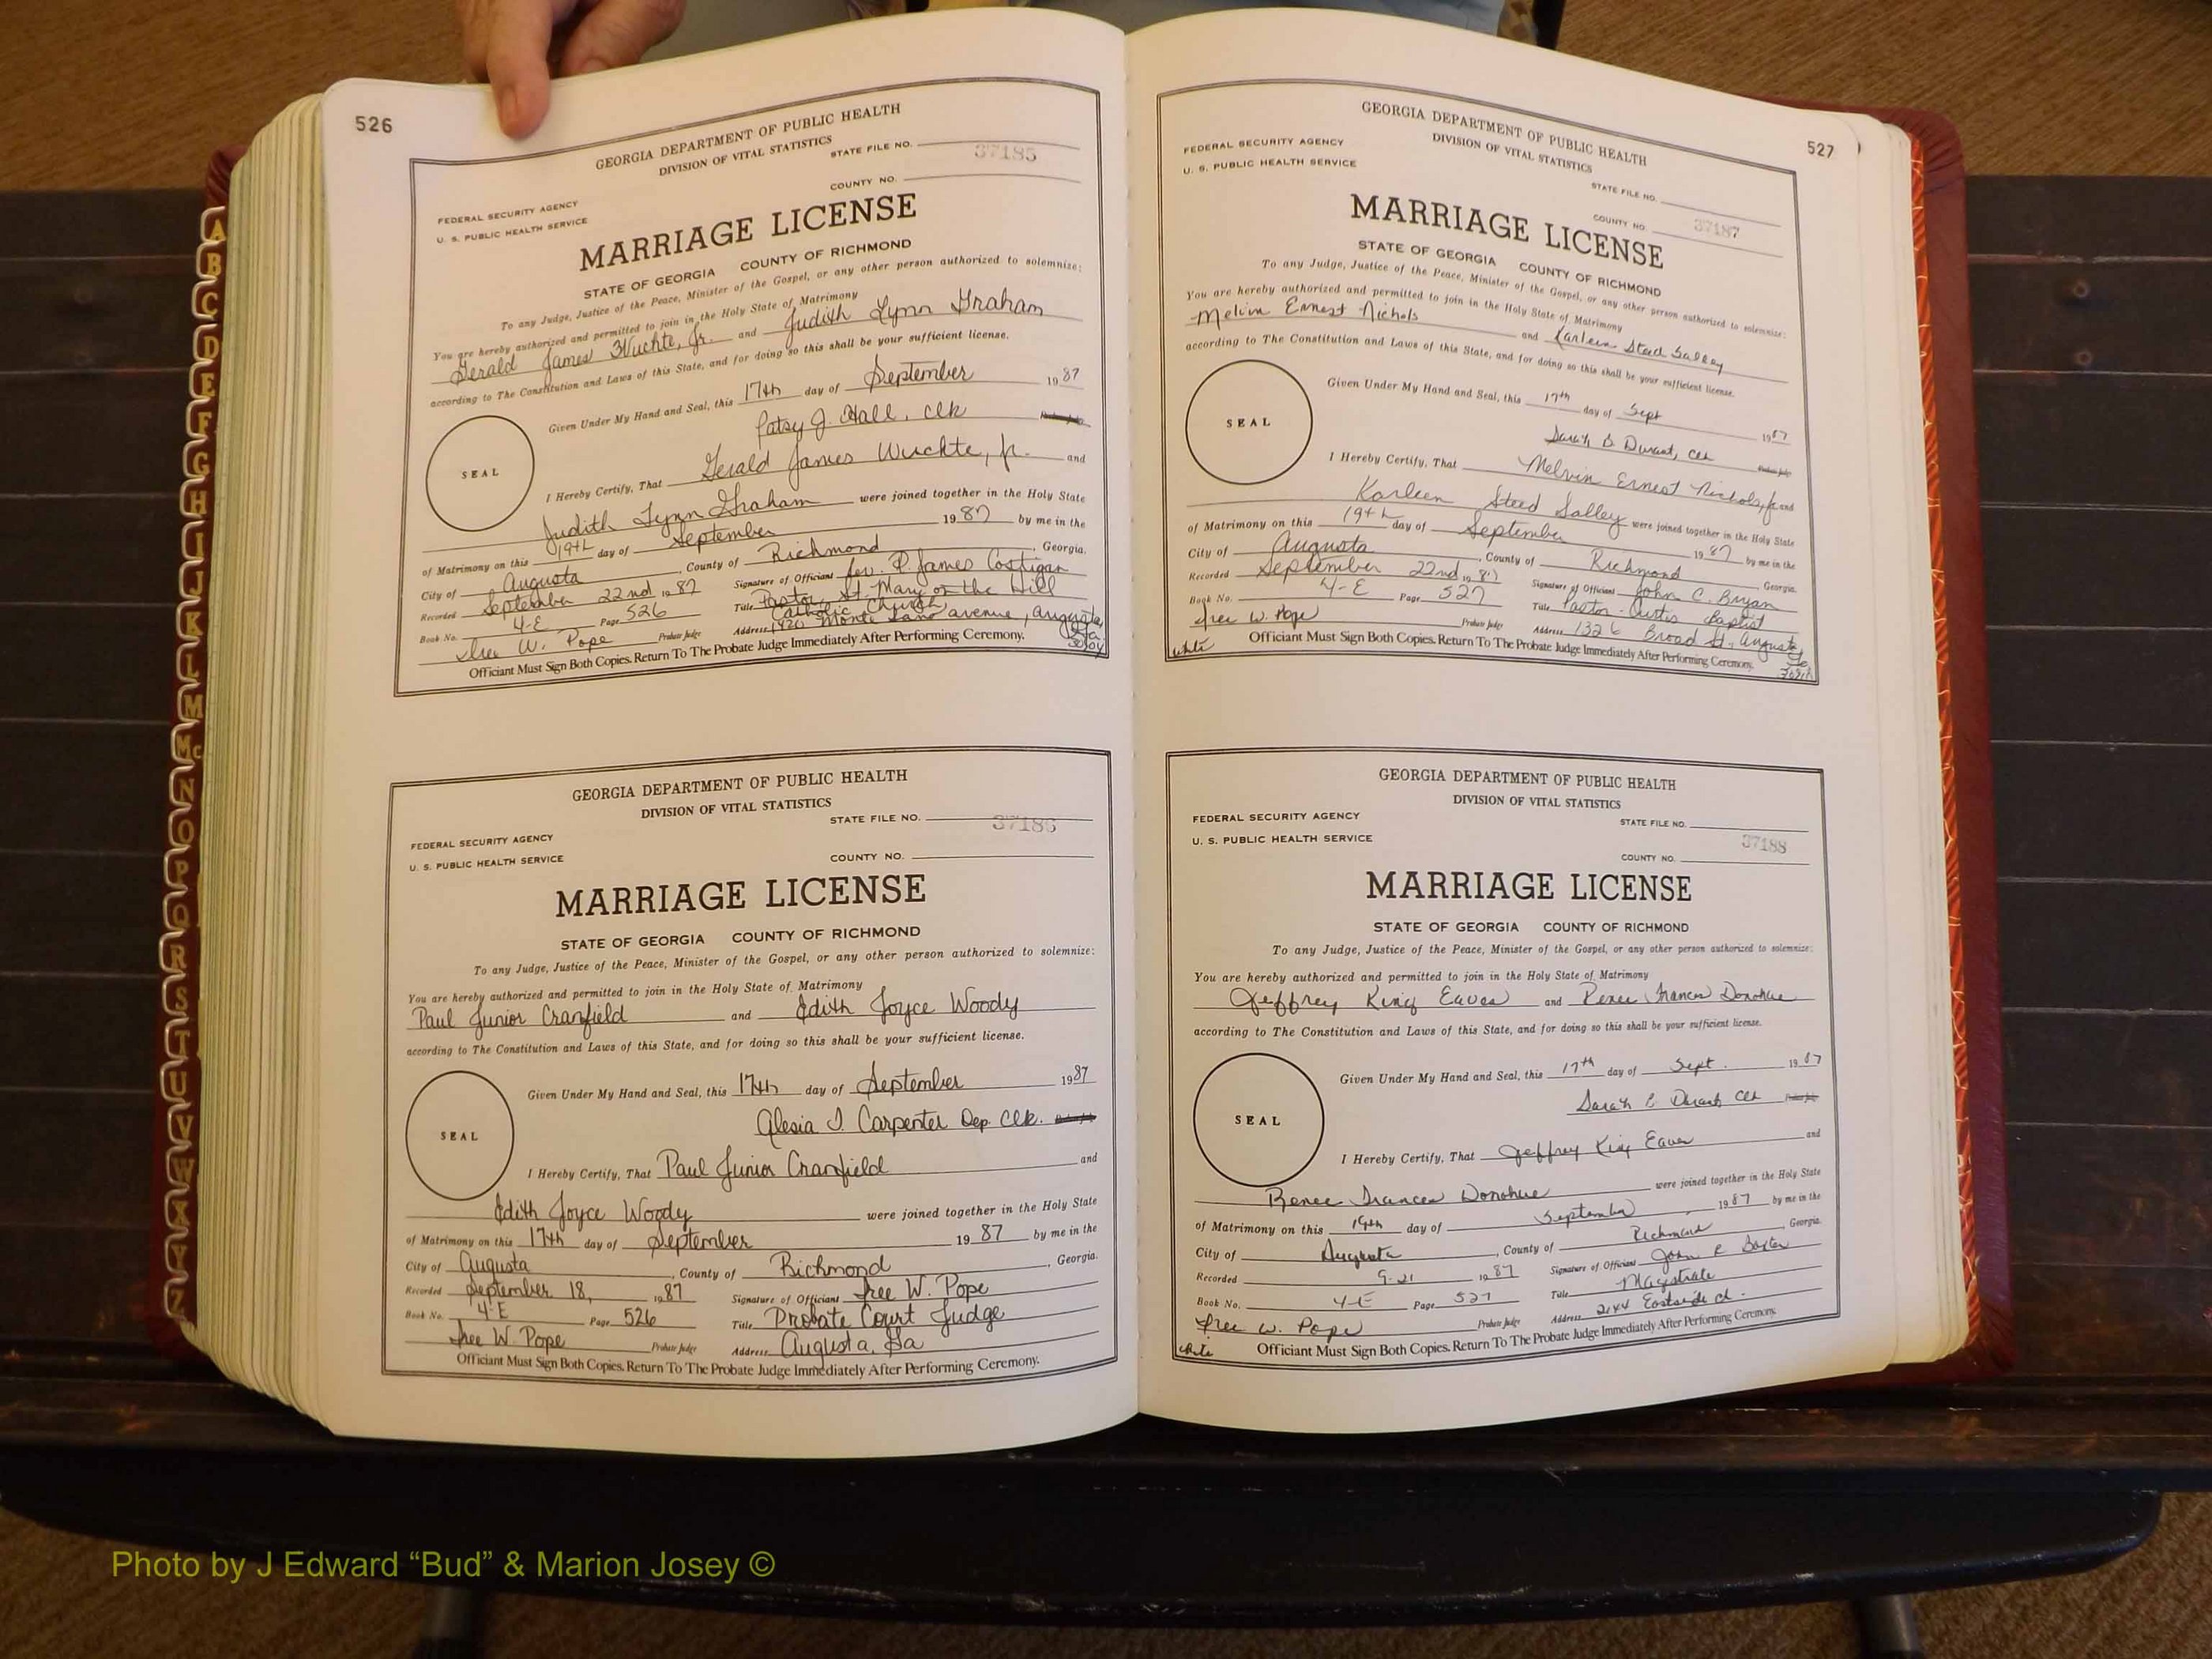 526
GEORGIA DEPARTMENT OF PUBLIC HEALTH
DIVISION OF VITAL STATISTICS
STATE FILE NO. 37185
COUNTY NO.
FEDERAL SECURITY AGENCY
U. S. PUBLIC HEALTH SERVICE
MARRIAGE LICENSE
STATE OF GEORGIA COUNTY OF RICHMOND
To any Judge, Justice of the Peace, Minister of the Gospel, or any other person authorized to solemnize:
You are hereby authorized and permitted to join in the Holy State of Matrimony
Gerald James Wuchte, Jr. and Judith Lynn Graham
according to The Constitution and Laws of this State, and for doing so this shall be your sufficient license.
Given Under My Hand and Seal, this 17th day of September 1987
Patsy J. Hall, Clk
SEAL
I Hereby Certify, That Gerald James Wuchte, Jr. and
Judith Lynn Graham were joined together in the Holy State
of Matrimony on this 19th day of September 1987 by me in the
City of Augusta, County of Richmond, Georgia.
Recorded September 22nd 1987 Signature of Official Rev. P. James Costigan
Book No. 4-E Page 526 Title Pastor, St. Mary on the Hill
Catholic Church
W. Pope Probate Judge Address 1420 Monte Sano avenue, augusta,
Ga.
Officiant Must Sign Both Copies. Return To The Probate Judge Immediately After Performing Ceremony.
GEORGIA DEPARTMENT OF PUBLIC HEALTH
DIVISION OF VITAL STATISTICS
STATE FILE NO. 37186
FEDERAL SECURITY AGENCY
U. S. PUBLIC HEALTH SERVICE
COUNTY NO.
MARRIAGE LICENSE
STATE OF GEORGIA COUNTY OF RICHMOND
To any Judge, Justice of the Peace, Minister of the Gospel, or any other person authorized to solemnize:
You are hereby authorized and permitted to join in the Holy State of Matrimony
Paul Junior Cranfield and Edith Joyce Woody
according to The Constitution and Laws of this State, and for doing so this shall be your sufficient license.
Given Under My Hand and Seal, this 17th day of September 1987
Alesia J. Carpenter Dep. Clk.
SEAL
I Hereby Certify, That Paul Junior Cranfield and
Edith Joyce Woody were joined together in the Holy State
of Matrimony on this 17th day of September 1987 by me in the
City of Augusta, County of Richmond, Georgia.
Recorded September 18, 1987 Signature of Official W. Pope
Book No. 4-E Page 526 Title Probate Court Judge
W. Pope Probate Judge Address Augusta, Ga
Officiant Must Sign Both Copies. Return To The Probate Judge Immediately After Performing Ceremony.
527
GEORGIA DEPARTMENT OF PUBLIC HEALTH
DIVISION OF VITAL STATISTICS
FEDERAL SECURITY AGENCY
U. S. PUBLIC HEALTH SERVICE
STATE FILE NO.
COUNTY NO. 37187
MARRIAGE LICENSE
STATE OF GEORGIA COUNTY OF RICHMOND
To any Judge, Justice of the Peace, Minister of the Gospel, or any other person authorized to solemnize:
You are hereby authorized and permitted to join in the Holy State of Matrimony
Melvin Ernest Nichols and Karleen Steed Salley
according to The Constitution and Laws of this State, and for doing so this shall be your sufficient license.
Given Under My Hand and Seal, this 17th day of Sept 1987
Sarah B Durant, Clk
SEAL
I Hereby Certify, That Melvin Ernest Nichols, Jr. and
Karleen Steed Salley were joined together in the Holy State
of Matrimony on this 19th day of September 1987 by me in the
City of Augusta, County of Richmond Georgia.
Recorded September 22nd 1987 Signature of Official John C. Bryan
Book No. 4-E Page 527 Title Pastor - Curtis Baptist
W. Pope Probate Judge Address 1326 Broad St., Augusta,
Officiant Must Sign Both Copies. Return To The Probate Judge Immediately After Performing Ceremony.
white
GEORGIA DEPARTMENT OF PUBLIC HEALTH
DIVISION OF VITAL STATISTICS
FEDERAL SECURITY AGENCY
STATE FILE NO.
U. S. PUBLIC HEALTH SERVICE
37188
COUNTY NO.
MARRIAGE LICENSE
STATE OF GEORGIA COUNTY OF RICHMOND
To any Judge, Justice of the Peace, Minister of the Gospel, or any other person authorized to solemnize:
You are hereby authorized and permitted to join in the Holy State of Matrimony
Jeffrey King Eaves and Renee Frances Donohue
according to The Constitution and Laws of this State, and for doing so this shall be your sufficient license.
Given Under My Hand and Seal, this 17th day of Sept. 1987
Sarah B Durant Clk
SEAL
I Hereby Certify, That Jeffrey King Eaves and
Renee Frances Donohue were joined together in the Holy State
of Matrimony on this 19th day of September 1987 by me in the
City of Augusta, County of Richmond, Georgia.
Recorded 9-21 1987 Signature of Official John R Baxter
Book No. 4-E Page 527 Title Magistrate
W. Pope Probate Judge Address 2144 Eastside Ct.
Officiant Must Sign Both Copies. Return To The Probate Judge Immediately After Performing Ceremony.
white
A
B
C
D
E
F
G
H
I
J
K
L
M
Mc
N
O
P
Q
R
S
T
U
V
W
X
Y
Z
Photo by J Edward “Bud” & Marion Josey ©